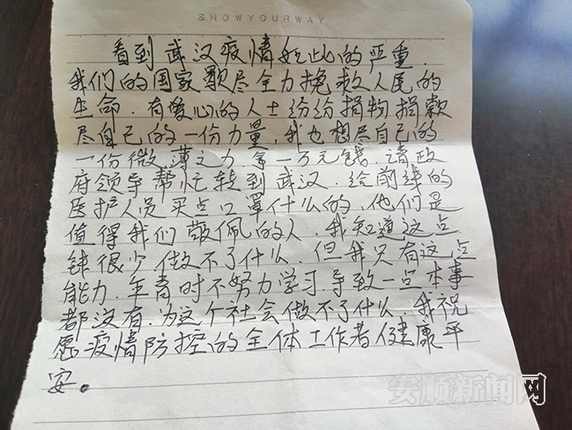 SHOWYOURWAY
看到武汉疫情如此的严重.
我们的国家歇尽全力挽救人民的
生命.有爱心的人士纷纷捐物捐款
尽自己的一份力量,我也想尽自己的
一份微薄之力,拿一万元钱.请政
府领导帮忙转到武汉.给前线的
医护人员买点口罩什么的,他们是
值得我们敬佩的人.我知道这点
钱很少做不了什么.但我只有这点
能力.年青时不努力学习.导致一点本事
都没有.为这个社会做不了什么,我祝
愿疫情防控的全体工作者健康平
安。
安顺新闻网